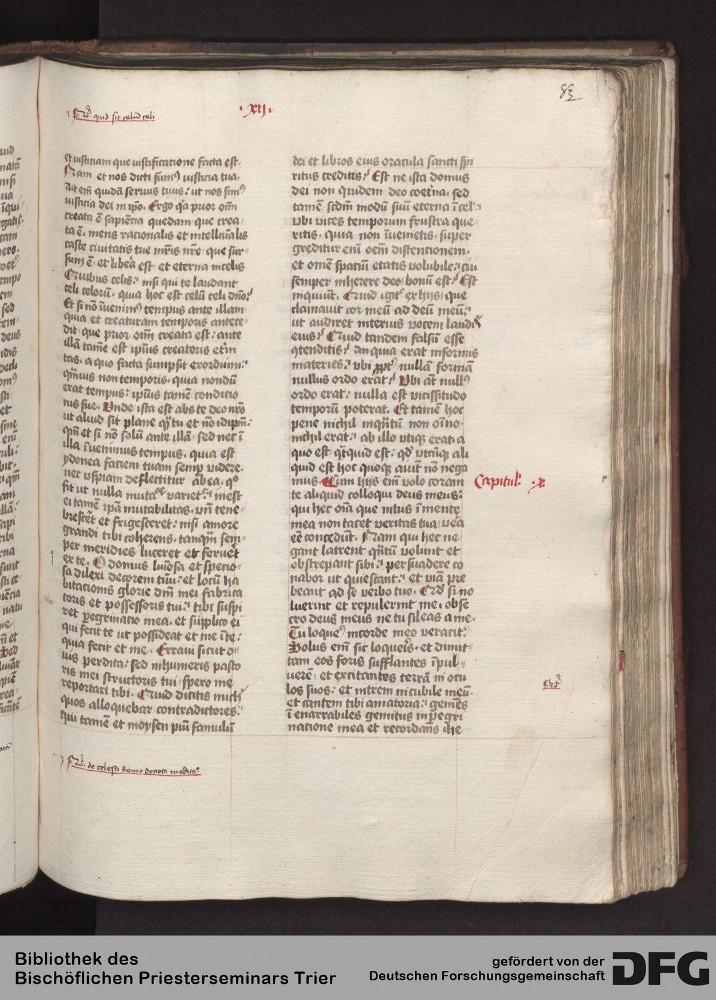 · xij ·
83
quid sit celum celi
et iusticiam que iustificatione facta est·
Nam et nos dicti sumus iusticia tua·
Ait enim quidam seruus tuus: ut nos simus
iusticia dei in ipso. Ergo quia prior omnium
creata est sapiencia quedam que crea-
ta est, mens racionalis et intellectualis
caste ciuitatis tue matris nostre· que sur-
sum est et libera est et eterna in celis
Quibus celis: nisi qui te laudant
celi celorum· quia hoc est celum celi domino.
Et si non inuenimus tempus ante illam·
quia et creaturam temporis antece-
dit· que prior omnium creata est: ante
illam tamen est ipsius creatoris eterni-
tas, a quo facta sumpsit exordium·
quamuis non temporis· quia nondum
erat tempus: ipsius tamen conditio-
nis sue. Unde ista est abs te deo nostro
ut aliud sit plane quam tu et non idipsum·
quoniam et si non solum ante illam· sed nec in
illa inuenimus tempus· quia est
ydonea faciem tuam semper videre·
nec uspiam deflectitur ab ea, quo
fit ut nulla mutatione varietur: inest
ei tamen ipsa mutabilitas· unde tene-
bresceret et frigesceret: nisi amore
grandi tibi coherens· tamquam sem-
per meridies luceret et ferueret
ex te. O domus luminosa et specio-
sa dilexi decorem tuum: et locum ha-
bitacionis glorie domini mei fabrica-
toris et possessoris tui: tibi suspi-
ret peregrinatio mea, et supplico ei
qui fecit te ut possideat et me in te:
quia fecit et me. Erraui sicut o-
uis perdita: sed in humeris pasto-
ris mei structoris tui· spero me
reportari tibi. Quid dicitis michi
quos alloquebar contradictores:
qui tamen et moysen pium famulum
de celesti
dei et libros eius oracula sancti spi-
ritus creditis? Est ne ista domus
dei non quidem deo coeterna· sed
tamen secundum modum suum eterna in celis
ubi vices temporum frustra que-
ritis· quia non inuenietis· super-
greditur enim omnem distentionem·
et omne spacium etatis volubile: cui
semper inherere deo bonum est? Est
inquiunt. Quid igitur ex hiis que
clamauit cor meum ad deum meum:
ut audiret interius vocem laudis
eius? Quid tandem falsum esse
contenditis? an quia erat informis
materies: ubi propter nullam formam
nullus ordo erat? Ubi autem nullus
ordo erat: nulla esse vicissitudo
temporum poterat. Et tamen hoc
pene nichil inquantum non omnino
nichil erat: ab illo utique erat· a
quo est quicquid est: quod utcumque ali-
quid est hoc quoque aiunt non nega-
mus. Cum hiis enim volo coram
te aliquid colloqui deus meus:
qui hec omnia que intus in mente
mea non tacet veritas tua· vera
esse concedunt. Nam qui hec ne-
gant latrent quantum volunt et
obstrepant sibi: persuadere co-
nabor ut quiescant: et viam pre-
beant ad se verbo tuo. Quod si no-
luerint et repulerint me· obse-
cro deus meus ne tu sileas a me·
Tu loquere in corde meo veracit'
Solus enim sic loqueris· et dimit-
tam eos foris sufflantes in pul-
uere: et excitantes terram in ocu-
los suos: et intrem in cubile meum·
et cantem tibi amatoria: gemens
inenarrabiles gemitus in peregri-
natione mea et recordans ihe-
Capitulum · x
Bibliothek des
Bischöflichen Priesterseminars Trier
gefördert von der
Deutschen Forschungsgemeinschaft
DFG